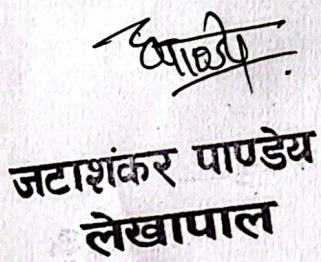 जटाशंकर पाण्डेय
लेखापाल